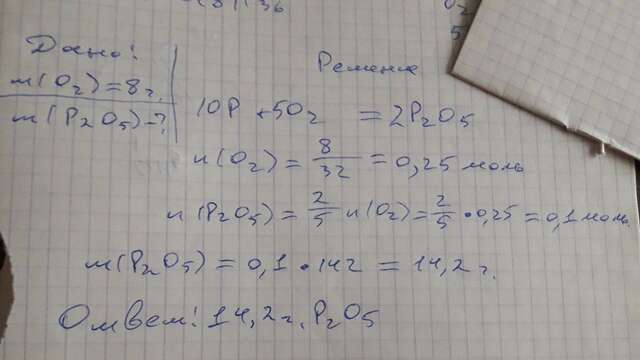 Дано:
m(O₂) = 8 г.
m(P₂O₅) - ?
Решение
10P + 5O₂ = 2P₂O₅
n(O₂) = 8/32 = 0,25 моль
n(P₂O₅) = 2/5 n(O₂) = 2/5 • 0,25 = 0,1 моль.
m(P₂O₅) = 0,1 • 142 = 14,2 г.
Ответ: 14,2 г. P₂O₅